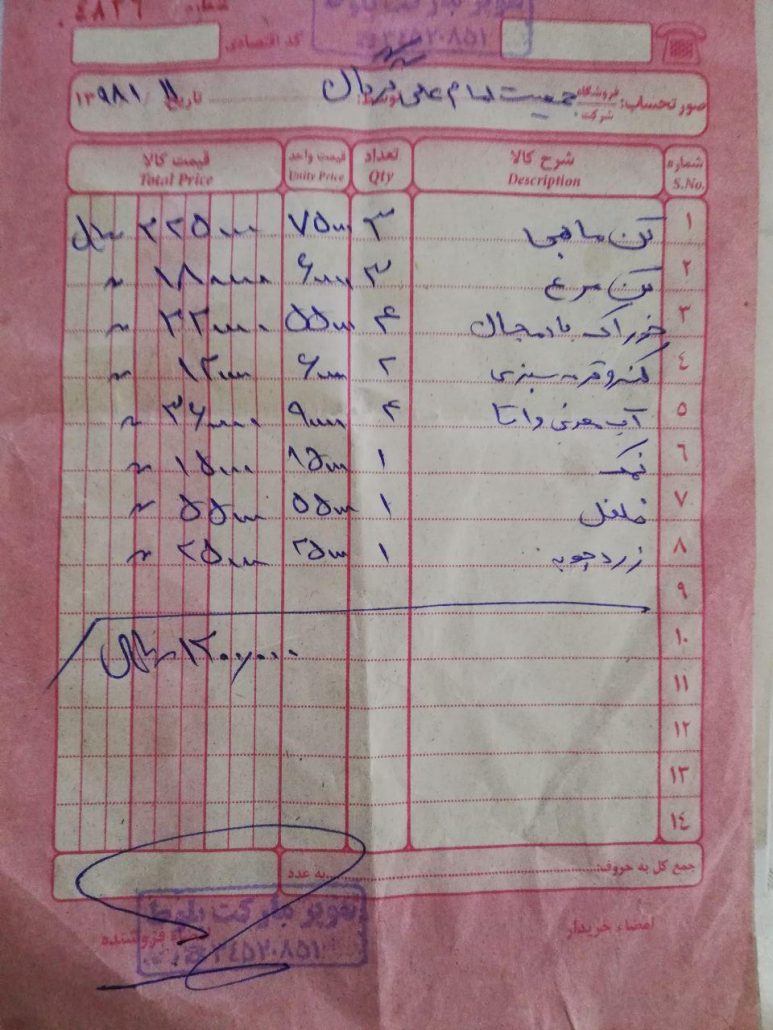 شماره ٤٨٣٦
کد اقتصادی
صورتحساب: فروشگاه شرکت جمعیت امام علی توسط: تاریخ ۱۳۹۸/۱/۱۱
شماره S.No. شرح کالا Description تعداد Qty قیمت واحد Unity Price قیمت کالا Total Price
۱ تن ماهی ۳ ۷۵۰۰۰ ۲۲۵۰۰۰ ریال
۲ تن مرغ ۳ ۶۰۰۰۰ ۱۸۰۰۰۰ ~
۳ خوراک بادمجان ۴ ۵۵۰۰۰ ۲۲۰۰۰۰ ~
٤ کنسرو قرمه سبزی ۲ ۶۰۰۰۰ ۱۲۰۰۰۰ ~
٥ آب معدنی واتا ۴ ۹۰۰۰۰ ۳۶۰۰۰۰ ~
٦ نمک ۱ ۱۵۰۰۰ ۱۵۰۰۰ ~
۷ فلفل ۱ ۵۵۰۰۰ ۵۵۰۰۰ ~
۸ زردچوبه ۱ ۲۵۰۰۰ ۲۵۰۰۰ ~
۹
۱۰ ۱۲۰۰,۰۰۰ ریال
۱۱
۱۲
۱۳
۱٤
جمع کل به حروف: به عدد
امضاء خریدار امضاء فروشنده
سوپر مارکت بلوط
۳٤٥۲۰۸٥۱